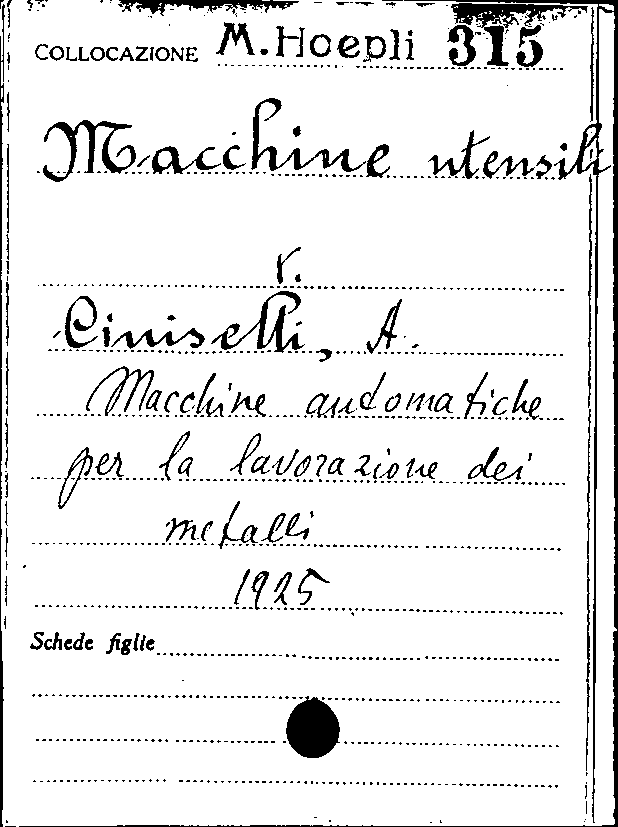 COLLOCAZIONE M. Hoepli 315
Macchine utensili
v.
Ciniselli, A.
Macchine automatiche
per la lavorazione dei
metalli
1925
Schede figlie